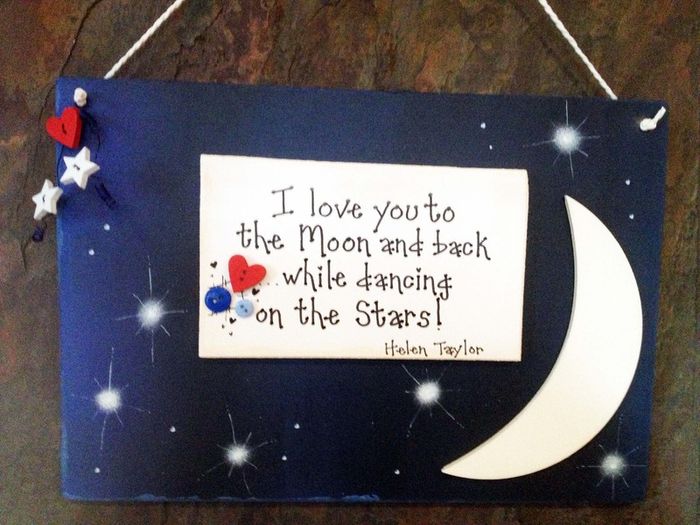 I love you to
the Moon and back
...while dancing
on the Stars!
Helen Taylor